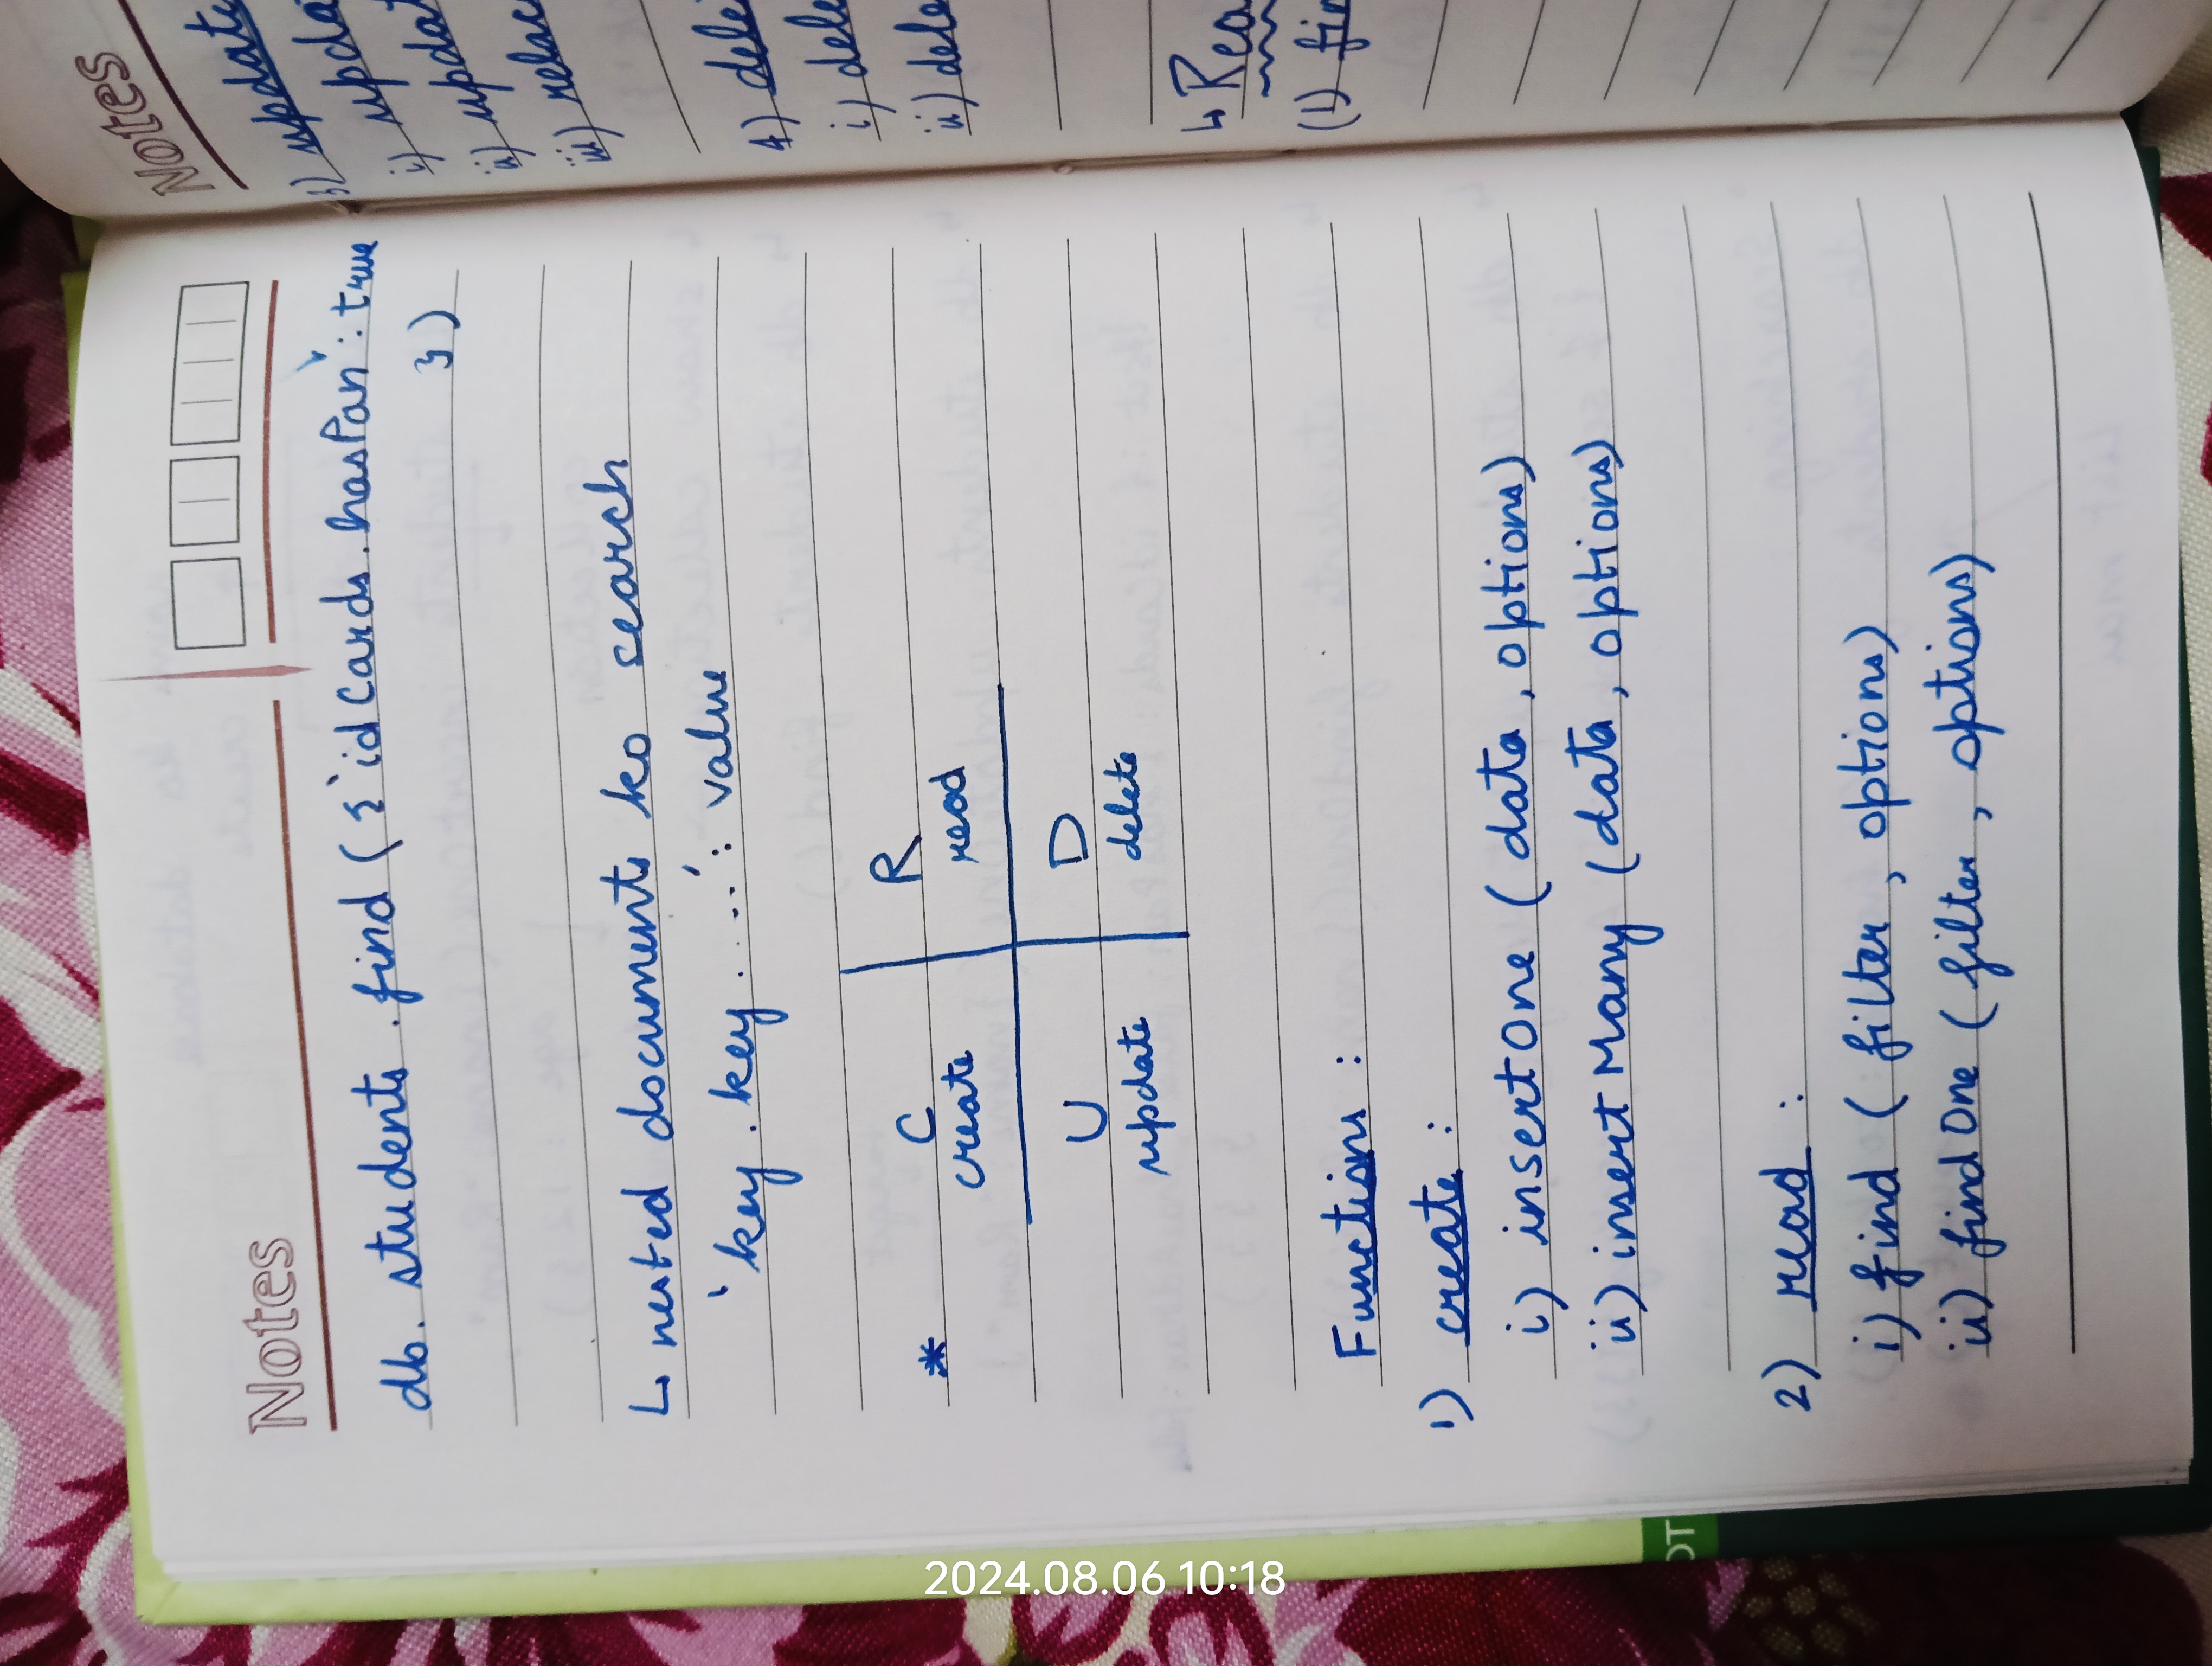 Notes
db. students. find ( { 'idCards. hasPan' : true
})
↳ nested documents ko search
'key. key. ...' : value
* C R
create read
U D
update delete
Functions :
1) create :
i) insertOne ( data, options)
ii) insertMany ( data, options)
2) read :
i) find ( filter, options)
ii) findOne ( filter, options)
Notes
update
3) upda
i) updat
ii) updat
iii) 
4) dele
i) dele
ii) dele
↳ Rea
(1) fin
OT
2024.08.06 10:18